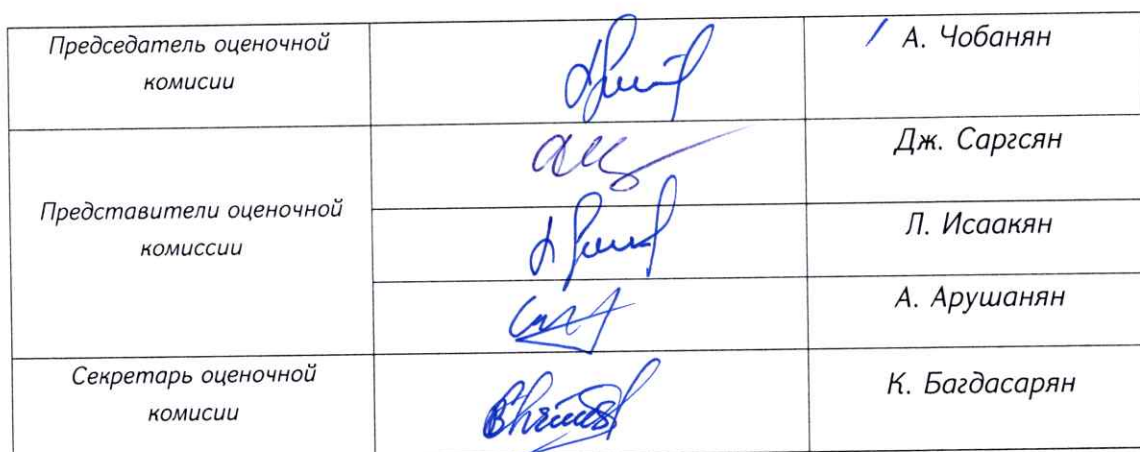 Председатель оценочной
комисии
А. Чобанян
Представители оценочной
комиссии
Дж. Саргсян
Л. Исаакян
А. Арушанян
Секретарь оценочной
комисии
К. Багдасарян